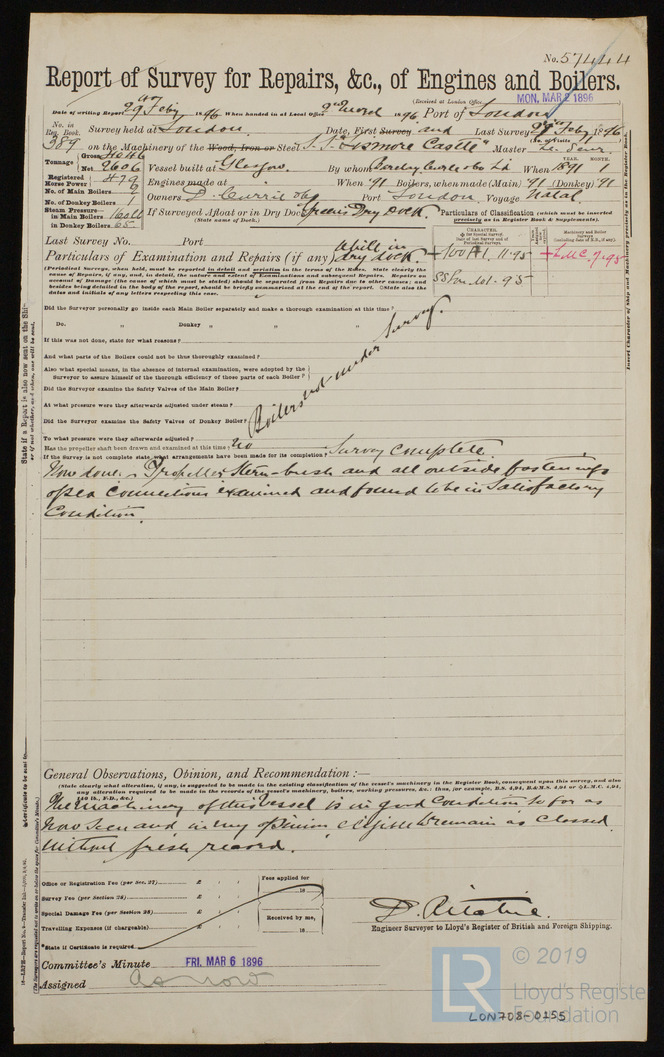 No. 57444
Report of Survey for Repairs, &c., of Engines and Boilers.
(Received at London Office MON. MAR 2 1896
Date of writing Report 29th Feby 1896 When handed in at Local Office 2nd March 1896 Port of London
No. in Reg. Book. Survey held at London. Date, First Survey and Last Survey 27th Feby 1896
389 on the Machinery of the Wood, Iron or Steel S.S. "Lismore Castle" Master
Tonnage Gross 4046 Net 2606 Vessel built at Glasgow. By whom Barclay Curle & Co Ld When 1891 YEAR. MONTH. 1
Registered Horse Power 479 Engines made at When '91 Boilers, when made (Main) '91 (Donkey) '91
No. of Main Boilers 2 Owners D. Currie & Co Port London. Voyage Natal.
No. of Donkey Boilers 1
Steam Pressure in Main Boilers 160 lb If Surveyed Afloat or in Dry Dock Dry Dock. Particulars of Classification (which must be inserted precisely as in Register Book & Supplements).
in Donkey Boilers 65. (State name of Dock.)
Last Survey No. Port
Particulars of Examination and Repairs (if any) dry dock. 100A1. 11.95 LMC. 7.95
(Periodical Surveys, when held, must be reported in detail and seriatim in the terms of the Rules. State clearly the
cause of Repairs, if any, and, in detail, the nature and extent of Examinations and subsequent Repairs. Repairs on
account of Damage (the cause of which must be stated) should be separated from Repairs due to other causes; and
besides being detailed in the body of the report, should be briefly summarised at the end of the report. State also the
dates and initials of any letters respecting this case.
Did the Surveyor personally go inside each Main Boiler separately and make a thorough examination at this time?
Do. " Donkey " " "
If this was not done, state for what reasons?
And what parts of the Boilers could not be thus thoroughly examined?
Also what special means, in the absence of internal examination, were adopted by the
Surveyor to assure himself of the thorough efficiency of those parts of each Boiler?
Did the Surveyor examine the Safety Valves of the Main Boiler?
At what pressure were they afterwards adjusted under steam?
Did the Surveyor examine the Safety Valves of Donkey Boiler?
Boilers not under Survey.
To what pressure were they afterwards adjusted?
Has the propeller shaft been drawn and examined at this time? No
If the Survey is not complete state what arrangements have been made for its completion? Survey Complete.
Now done:- Propeller Stern-bush and all outside fastenings
of sea connections examined and found to be in Satisfactory
Condition.
General Observations, Opinion, and Recommendation:—
(State clearly what alteration, if any, is suggested to be made in the existing classification of the vessel's machinery in the Register Book, consequent upon this survey, and also
any alteration required to be made in the records of the vessel's machinery, boilers, working pressures, &c.: thus, for example, B.S. 4,94, B.&M.S. 4,94 or L.M.C. 4,94,
140 lb., F.D., &c.)
The Machinery of this Vessel is in good Condition so far as
now seen and in my opinion eligible to remain as Classed
without fresh record.
Office or Registration Fee (per Sec. 27) £ : : Fees applied for
Survey Fee (per Section 28) £ : : 18
Special Damage Fee (per Section 28) £ : : Received by me,
Travelling Expenses (if chargeable) £ : : 18
*State if Certificate is required
D. Ritchie.
Engineer Surveyor to Lloyd's Register of British and Foreign Shipping.
Committee's Minute FRI. MAR 6 1896
Assigned as now
© 2019
LR Lloyd's Register Foundation
LON708-0255